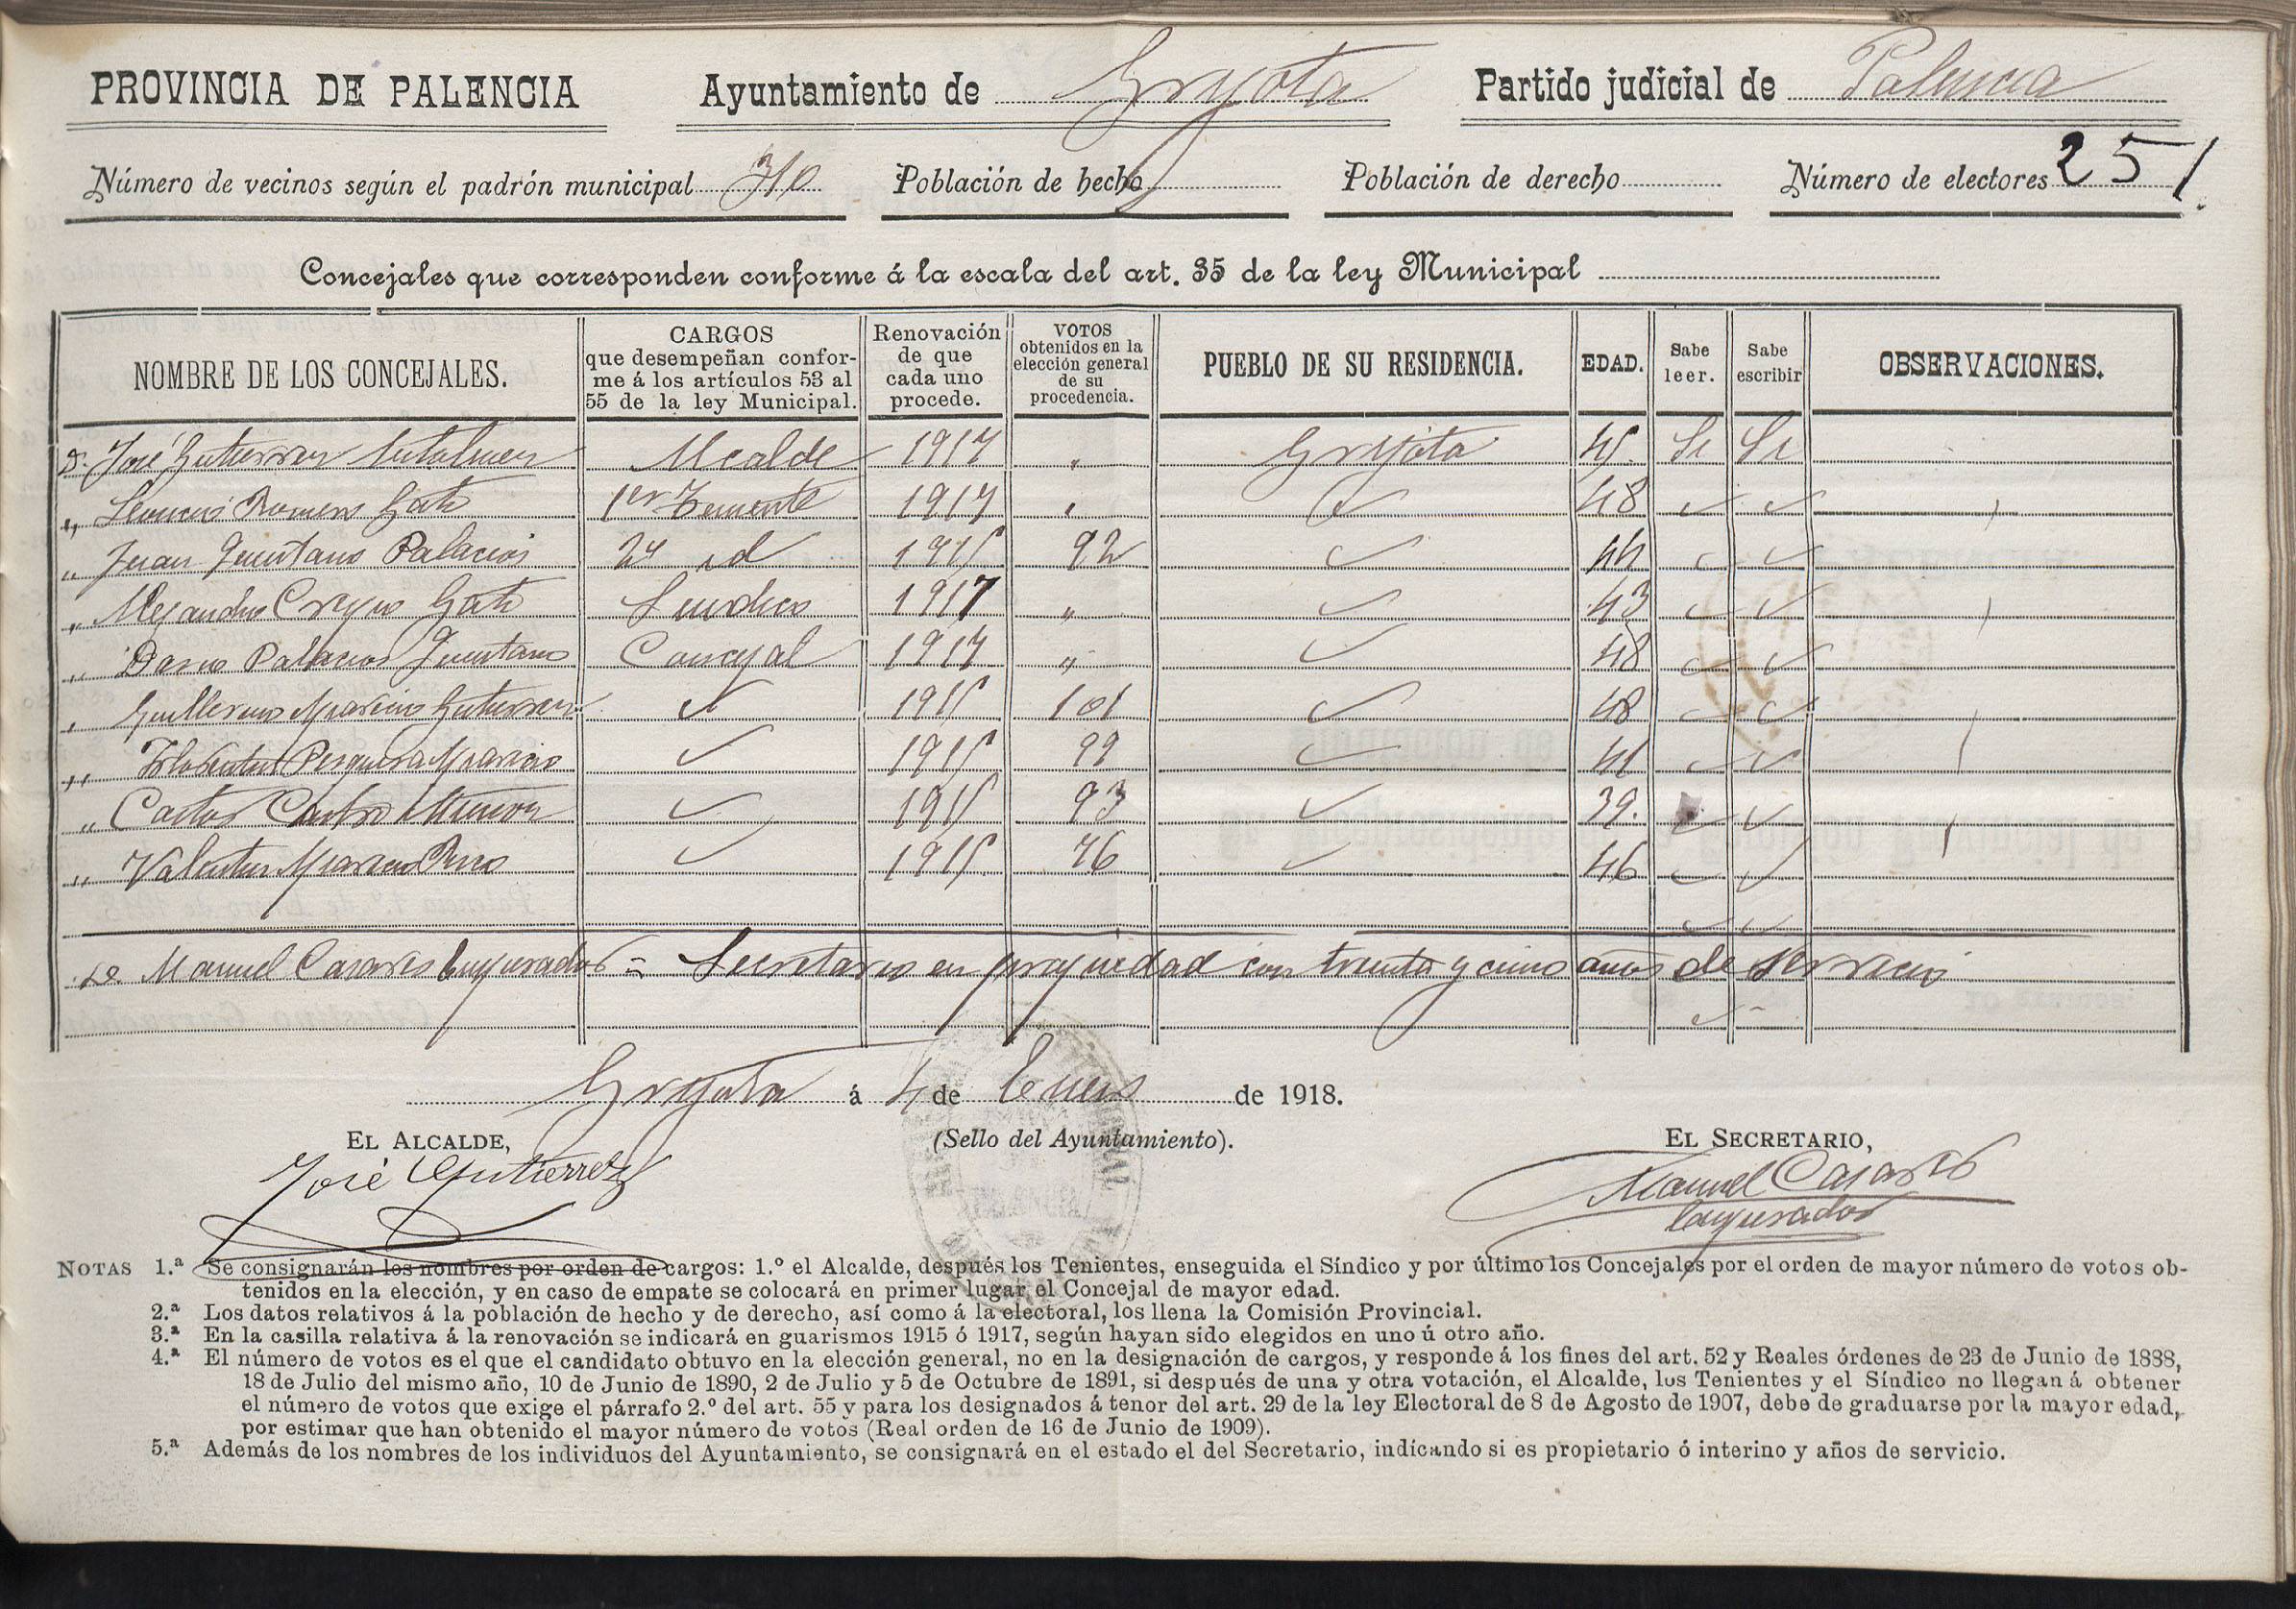 PROVINCIA DE PALENCIA Ayuntamiento de Grijota Partido judicial de Palencia
Número de vecinos según el padrón municipal 310 Población de hecho Población de derecho Número de electores 251.
Concejales que corresponden conforme á la escala del art. 35 de la ley Municipal
NOMBRE DE LOS CONCEJALES. CARGOS que desempeñan conforme á los artículos 53 al 55 de la ley Municipal. Renovación de que cada uno procede. VOTOS obtenidos en la elección general de su procedencia. PUEBLO DE SU RESIDENCIA. EDAD. Sabe leer. Sabe escribir OBSERVACIONES.
D. José Gutierrez Alcalde 1917 " Grijota 45. Si Si
" Romero Gato 1er Teniente 1917 " 48
" Juan Quintano Palacios 2º id 1915 92 44
" Alejandro Crespo Gato Sindico 1917 " 43
" Dario Palacios Quintano Concejal 1917 " 48
" Guillermo Aparicio Gutierrez 1915 101 48
" Florentin Pesquera Aparicio 1915 99 41
" Carlos Castro Muñoz 1915 93 39.
" Valentin Aparicio 1915 76 46
D. Manuel Casares = Secretario en propiedad con treinta y cinco años de servicio
Grijota á 4 de Enero de 1918.
EL ALCALDE, (Sello del Ayuntamiento). EL SECRETARIO,
José Gutierrez Manuel Casares
NOTAS 1.ª Se consignarán los nombres por orden de cargos: 1.º el Alcalde, después los Tenientes, enseguida el Síndico y por último los Concejales por el orden de mayor número de votos ob-
tenidos en la elección, y en caso de empate se colocará en primer lugar el Concejal de mayor edad.
2.ª Los datos relativos á la población de hecho y de derecho, así como á la electoral, los llena la Comisión Provincial.
3.ª En la casilla relativa á la renovación se indicará en guarismos 1915 ó 1917, según hayan sido elegidos en uno ú otro año.
4.ª El número de votos es el que el candidato obtuvo en la elección general, no en la designación de cargos, y responde á los fines del art. 52 y Reales órdenes de 23 de Junio de 1888,
18 de Julio del mismo año, 10 de Junio de 1890, 2 de Julio y 5 de Octubre de 1891, si después de una y otra votación, el Alcalde, los Tenientes y el Síndico no llegan á obtener
el número de votos que exige el párrafo 2.º del art. 55 y para los designados á tenor del art. 29 de la ley Electoral de 8 de Agosto de 1907, debe de graduarse por la mayor edad,
por estimar que han obtenido el mayor número de votos (Real orden de 16 de Junio de 1909).
5.ª Además de los nombres de los individuos del Ayuntamiento, se consignará en el estado el del Secretario, indicando si es propietario ó interino y años de servicio.